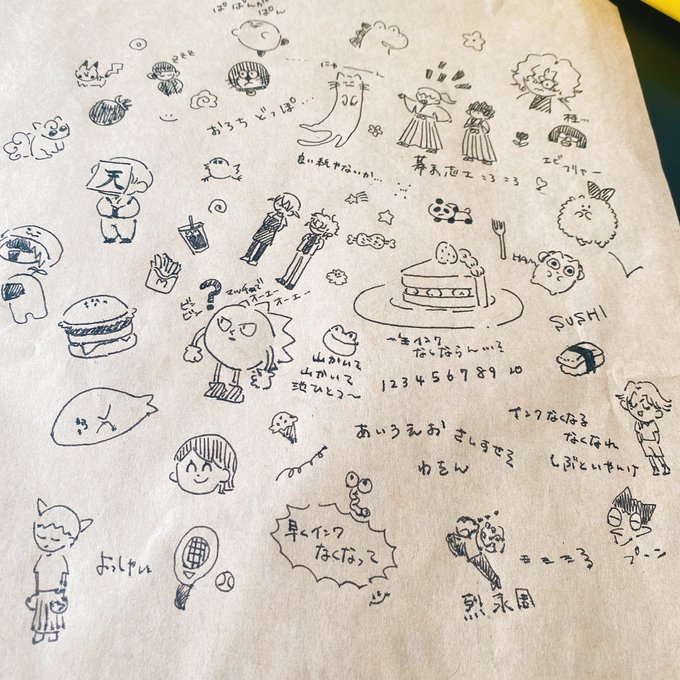 ぱぱんがぱん
zzzz
にゃ〜ん
おろちどっぽ…
良い紙やないか…
幕末志士 ころころ
桂…
エビフリャー
天
?
マッチョで
オーエー
オーエー
ビン
ビン
山かいて
山かいて
池ひとつ〜
一生インク
なくならんぃ!
1 2 3 4 5 6 7 8 9 10
SUSHI
あいうえお さしすせそ
わをん
インクなくなる
なくなれ
しぶといやんけ
よっしゃい
早くインク
なくなって
烈永周
プーン